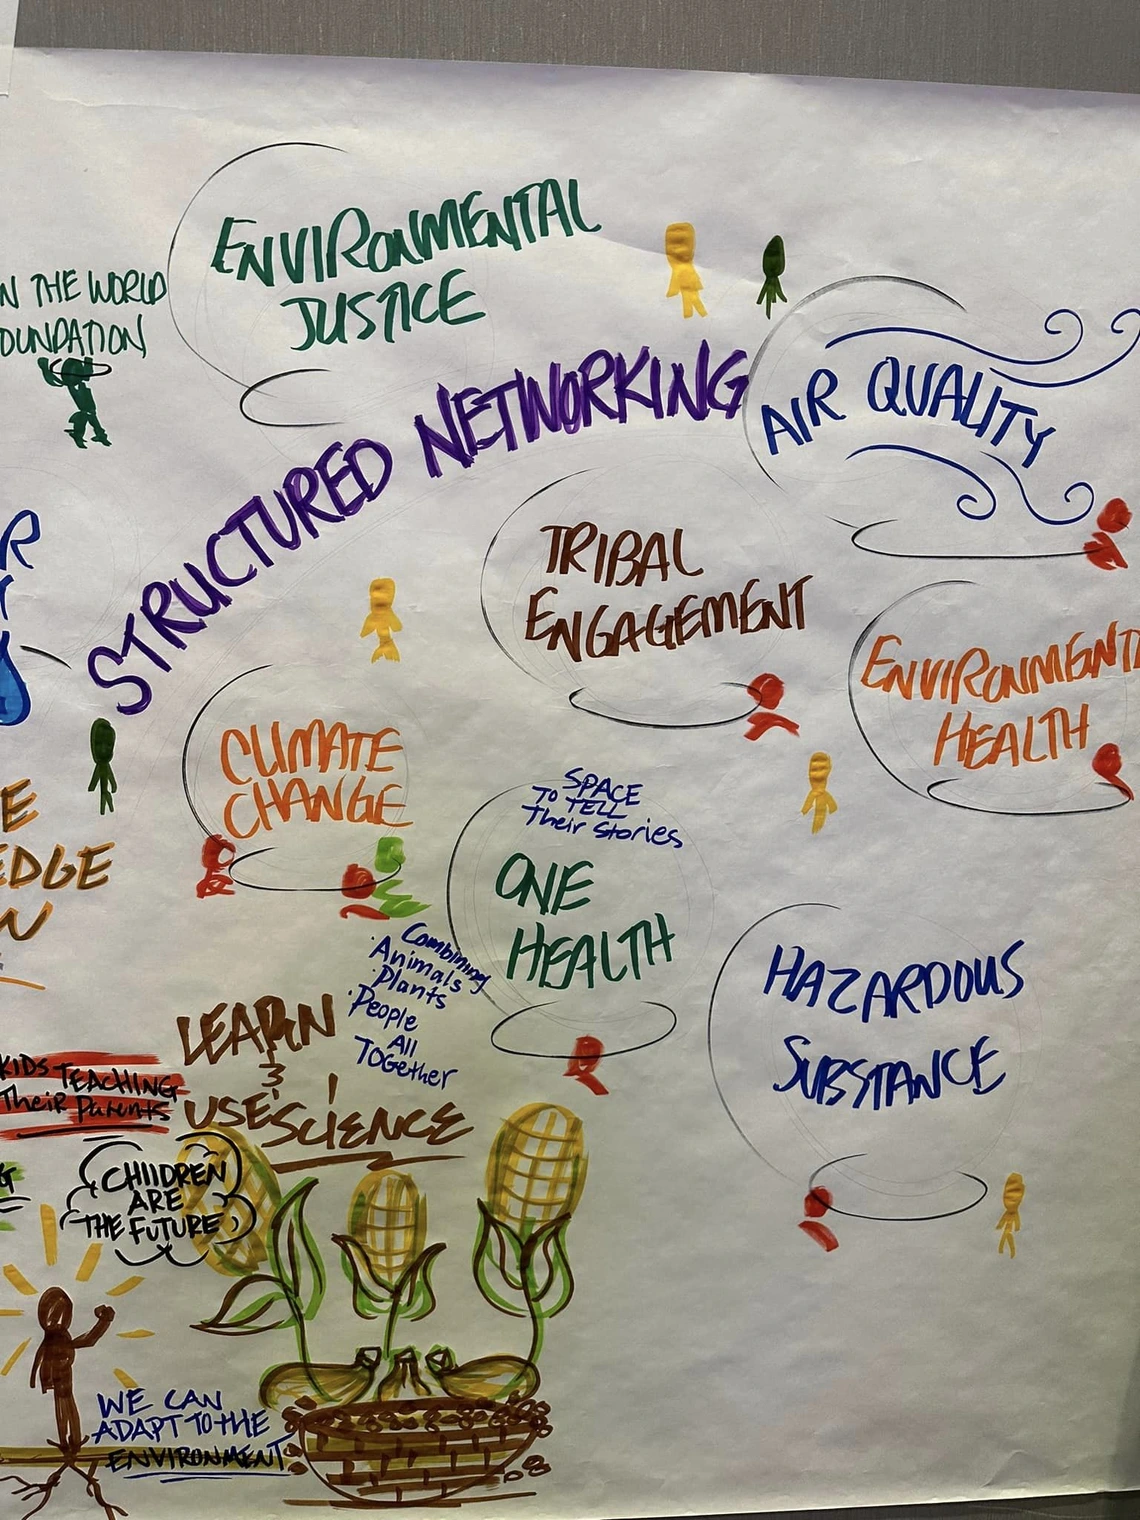 ENVIRONMENTAL
JUSTICE
THE WORLD
STRUCTURED NETWORKING
AIR QUALITY
TRIBAL
ENGAGEMENT
HEALTH
CLIMATE
CHANGE
SPACE
TO TELL
Their Stories
ONE
HEALTH
Combining
· Animals
· Plants
· People
All
TOGether
HAZARDOUS
SUBSTANCE
LEARN
&
USE SCIENCE
KIDS TEACHING
Their Parents
CHILDREN
ARE
THE FUTURE
WE CAN
ADAPT TO THE
ENVIRONMENT